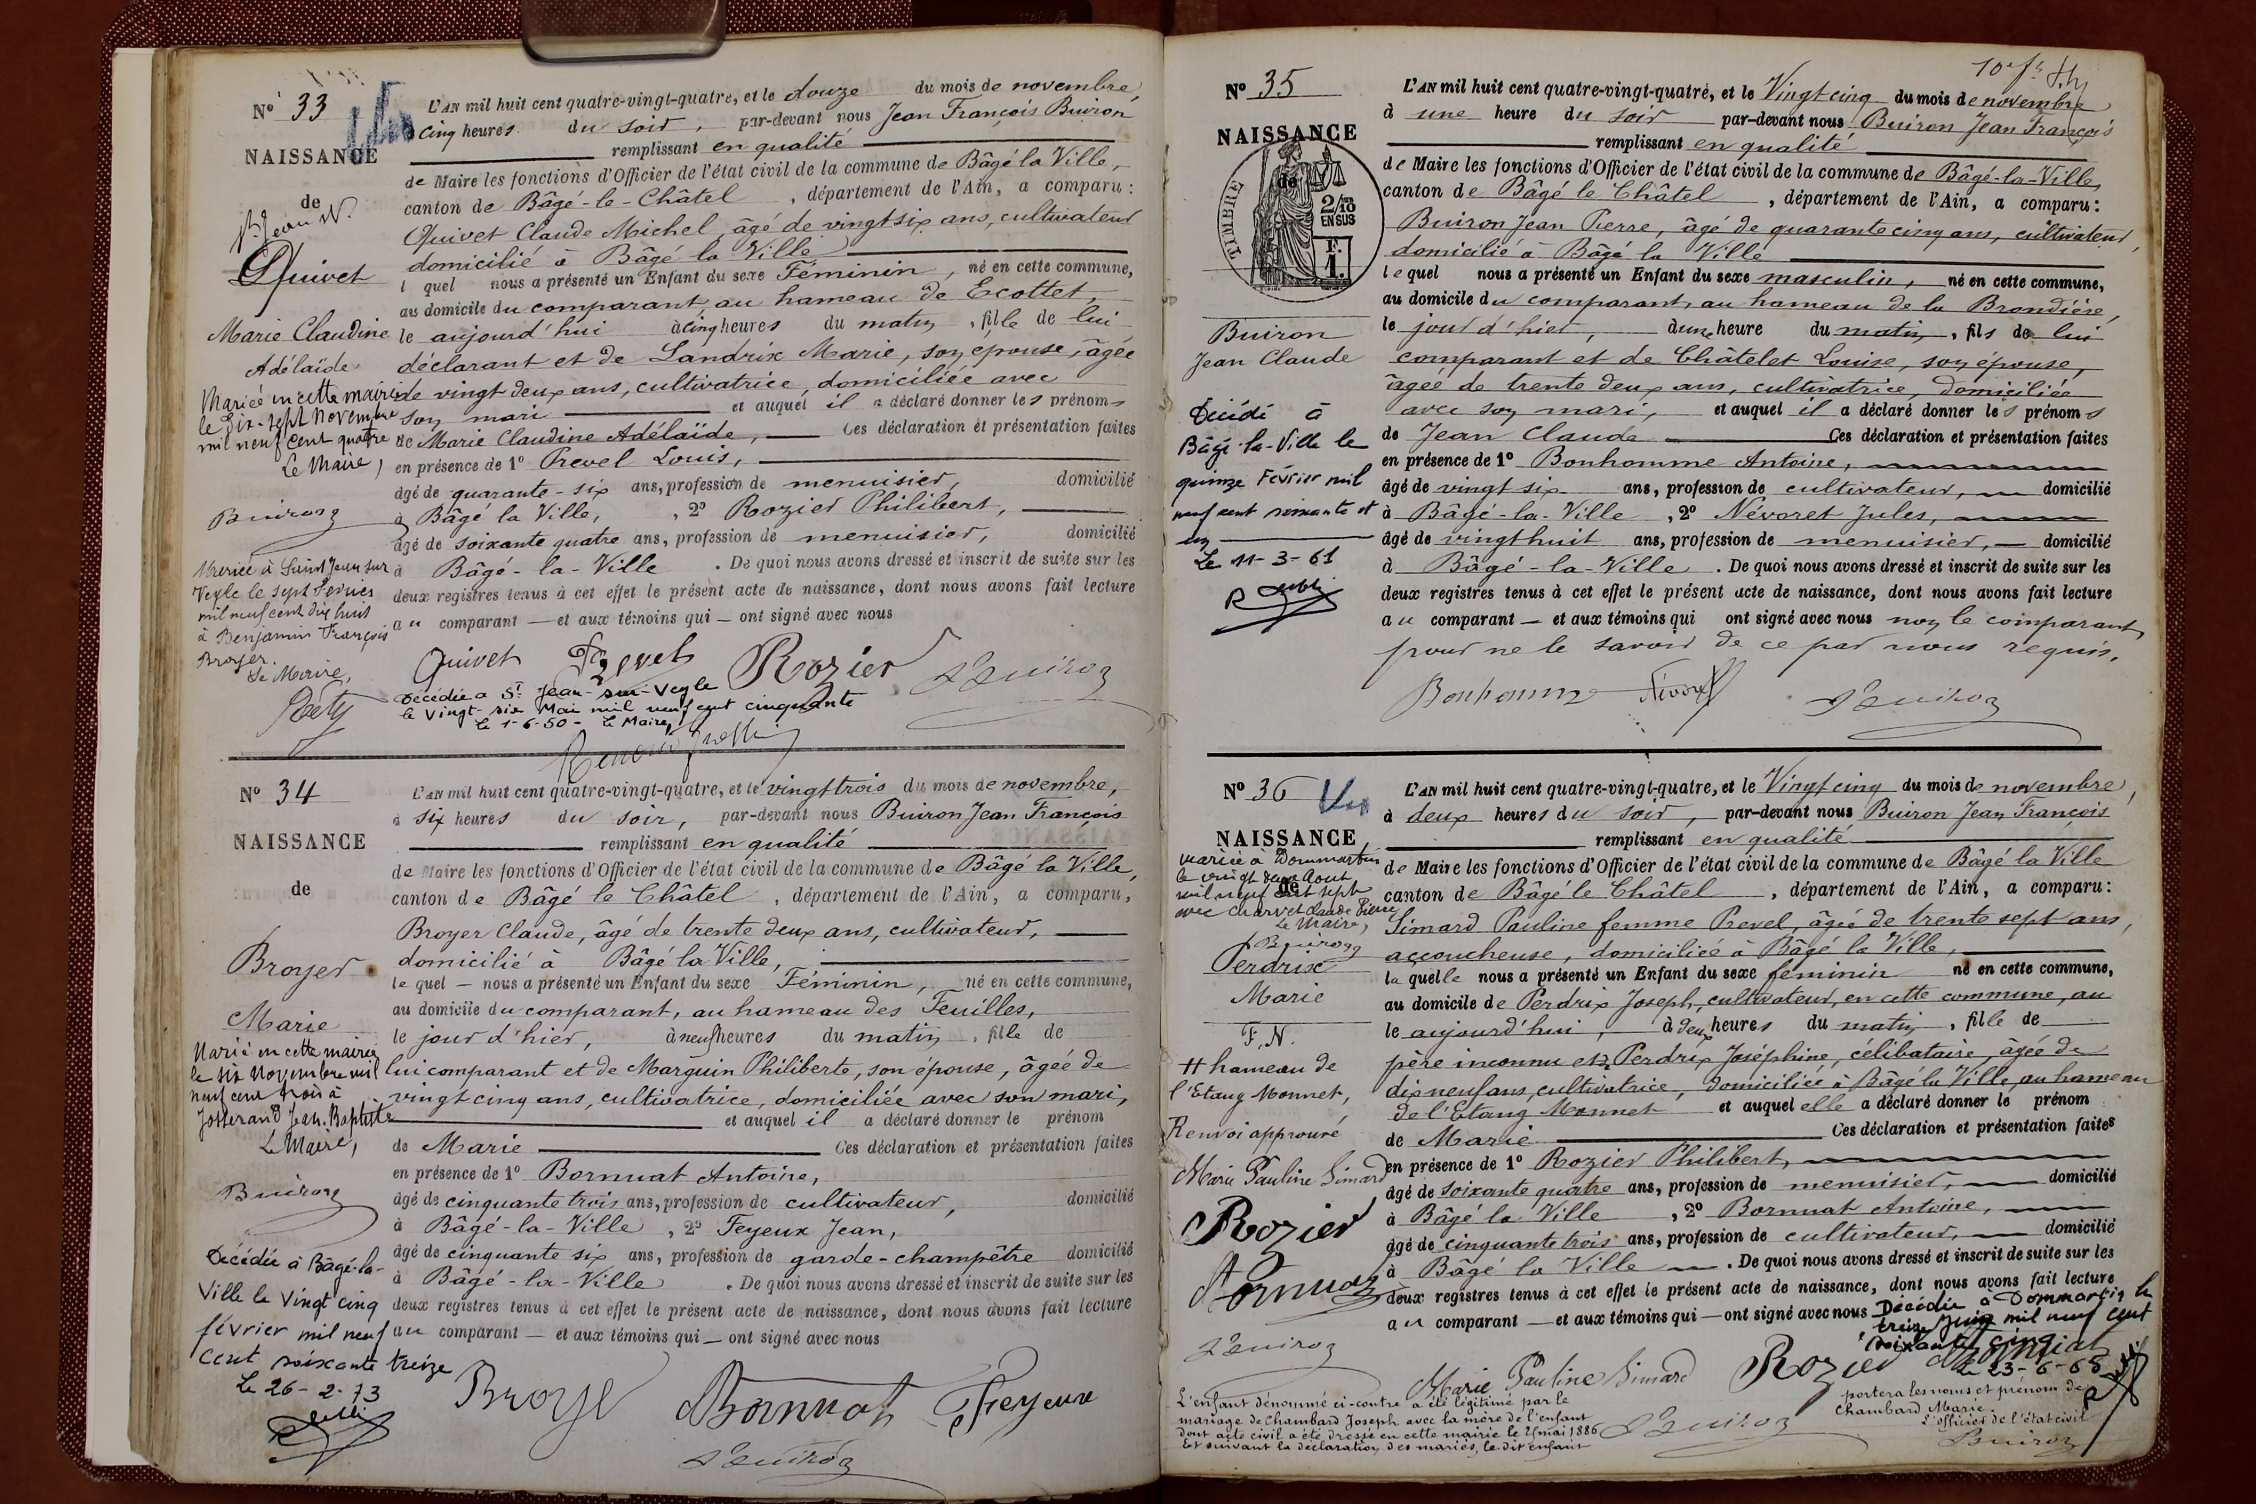 N° 33
NAISSANCE
de
Quivet
Marie Claudine
Adélaïde
Mariée en cette mairie
le dix-sept Novembre
mil neuf cent quatre
Le Maire,
Buiron
Mariée à Saint Jean sur
Veyle le sept Février
mil neuf cent dix huit
à Benjamin François
Broyer.
Le Maire,
L'AN mil huit cent quatre-vingt-quatre, et le douze du mois de novembre,
cinq heures du soir, par-devant nous Jean François Buiron
remplissant en qualité
de Maire les fonctions d'Officier de l'état civil de la commune de Bâgé la Ville,
canton de Bâgé-le-Châtel, département de l'Ain, a comparu :
Quivet Claude Michel, âgé de vingt six ans, cultivateur
domicilié à Bâgé la Ville
l quel nous a présenté un Enfant du sexe Féminin, né en cette commune,
au domicile du comparant, au hameau de Ecottet,
le aujourd'hui à cinq heures du matin, fille de lui
déclarant et de Landrix Marie, son épouse, âgée
de vingt deux ans, cultivatrice, domiciliée avec
son mari et auquel il a déclaré donner les prénoms
de Marie Claudine Adélaïde, Ces déclaration et présentation faites
en présence de 1° Prevel Louis,
âgé de quarante-six ans, profession de menuisier, domicilié
à Bâgé la Ville, , 2° Rozier Philibert,
âgé de soixante quatre ans, profession de menuisier, domicilié
à Bâgé-la-Ville . De quoi nous avons dressé et inscrit de suite sur les
deux registres tenus à cet effet le présent acte de naissance, dont nous avons fait lecture
au comparant — et aux témoins qui — ont signé avec nous
Quivet Prevel Rozier Buiron
Décédée à St Jean-sur-Veyle
le vingt-six Mai mil neuf cent cinquante
le 1-6-50 - Le Maire,
N° 34
NAISSANCE
de
Broyer
Marie
Marié en cette mairie
le six Novembre mil
neuf cent trois à
Josserand Jean-Baptiste
Le Maire,
Buiron
Décédée à Bâgé-la-
Ville le vingt cinq
février mil neuf
cent soixante treize
Le 26-2-73
L'AN mil huit cent quatre-vingt-quatre, et le vingt trois du mois de novembre,
à six heures du soir, par-devant nous Buiron Jean François
remplissant en qualité
de Maire les fonctions d'Officier de l'état civil de la commune de Bâgé la Ville,
canton de Bâgé le Châtel, département de l'Ain, a comparu,
Broyer Claude, âgé de trente deux ans, cultivateur,
domicilié à Bâgé la Ville,
le quel — nous a présenté un Enfant du sexe Féminin, né en cette commune,
au domicile du comparant, au hameau des Feuilles,
le jour d'hier, à neuf heures du matin, fille de
lui comparant et de Marguin Philiberte, son épouse, âgée de
vingt cinq ans, cultivatrice, domiciliée avec son mari,
et auquel il a déclaré donner le prénom
de Marie Ces déclaration et présentation faites
en présence de 1° Bornuat Antoine,
âgé de cinquante trois ans, profession de cultivateur, domicilié
à Bâgé-la-Ville, 2° Feyeux Jean,
âgé de cinquante six ans, profession de garde-champêtre domicilié
à Bâgé-la-Ville . De quoi nous avons dressé et inscrit de suite sur les
deux registres tenus à cet effet le présent acte de naissance, dont nous avons fait lecture
au comparant — et aux témoins qui — ont signé avec nous
Broyer Bornuat Feyeux
Buiron
N° 35
NAISSANCE
de
TIMBRE
2/10
EN SUS
F.
1.
Buiron
Jean Claude
Décédé à
Bâgé-la-Ville le
quinze Février mil
neuf cent soixante et
un
Le 11-3-61
L'AN mil huit cent quatre-vingt-quatre, et le Vingt cinq du mois de novembre
à une heure du soir par-devant nous Buiron Jean François
remplissant en qualité
de Maire les fonctions d'Officier de l'état civil de la commune de Bâgé-la-Ville,
canton de Bâgé le Châtel, département de l'Ain, a comparu :
Buiron Jean Pierre, âgé de quarante cinq ans, cultivateur,
domicilié à Bâgé la Ville
lequel nous a présenté un Enfant du sexe masculin, né en cette commune,
au domicile du comparant, au hameau de la Brondière,
le jour d'hier, à une heure du matin, fils de lui
comparant et de Châtelet Louise, son épouse,
âgée de trente deux ans, cultivatrice, domiciliée
avec son mari, et auquel il a déclaré donner les prénoms
de Jean Claude Ces déclaration et présentation faites
en présence de 1° Bonhomme Antoine,
âgé de vingt six ans, profession de cultivateur, domicilié
à Bâgé-la-Ville, 2° Névoret Jules,
âgé de vingt huit ans, profession de menuisier, domicilié
à Bâgé-la-Ville . De quoi nous avons dressé et inscrit de suite sur les
deux registres tenus à cet effet le présent acte de naissance, dont nous avons fait lecture
au comparant — et aux témoins qui ont signé avec nous non le comparant
pour ne le savoir de ce par nous requis.
Bonhomme Névoret Buiron
N° 36
NAISSANCE
de
Mariée à Dommartin
le vingt deux Aout
mil neuf cent sept
avec Charvet Claude Pierre
Le Maire,
Buiron
Perdrix
Marie
F. N.
# hameau de
l'Etang Monnet,
Renvoi approuvé
Marie Pauline Simard
Rozier
Bornuat
Buiron
L'AN mil huit cent quatre-vingt-quatre, et le Vingt cinq du mois de novembre,
à deux heures du soir, par-devant nous Buiron Jean François
remplissant en qualité
de Maire les fonctions d'Officier de l'état civil de la commune de Bâgé la Ville
canton de Bâgé le Châtel, département de l'Ain, a comparu :
Simard Pauline femme Prevel, âgée de trente sept ans,
accoucheuse, domiciliée à Bâgé la Ville,
laquelle nous a présenté un Enfant du sexe féminin né en cette commune,
au domicile de Perdrix Joseph, cultivateur, en cette commune, au
le aujourd'hui, à deux heures du matin, fille de
père inconnu et Perdrix Joséphine, célibataire, âgée de
dix neuf ans, cultivatrice, domiciliée à Bâgé la Ville, au hameau
de l'Etang Monnet et auquel elle a déclaré donner le prénom
de Marie Ces déclaration et présentation faites
en présence de 1° Rozier Philibert,
âgé de soixante quatre ans, profession de menuisier, domicilié
à Bâgé la Ville, 2° Bornuat Antoine,
âgé de cinquante trois ans, profession de cultivateur, domicilié
à Bâgé la Ville . De quoi nous avons dressé et inscrit de suite sur les
deux registres tenus à cet effet le présent acte de naissance, dont nous avons fait lecture
au comparant — et aux témoins qui — ont signé avec nous
Décédée à Dommartin le
treize Juin mil neuf cent
soixante cinq
Le 23-6-65
Marie Pauline Simard Rozier Bornuat
L'enfant dénommé ci-contre a été légitimé par le
mariage de Chambard Joseph avec la mère de l'enfant
dont acte civil a été dressé en cette mairie le 25 mai 1886
Et suivant la déclaration des mariés, le dit enfant
portera les noms et prénom de
Chambard Marie.
L'officier de l'état civil
Buiron